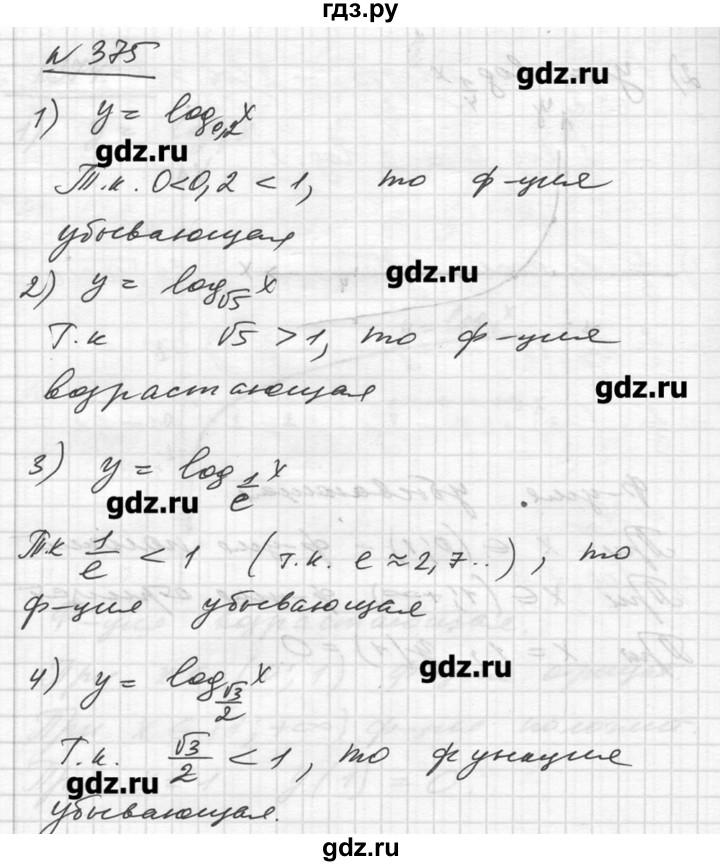 гдз.ру
N 375
gdz.ru
1) y = log_{0,2} x
gdz.ru
Т.к. 0<0,2 < 1, то ф-ция
убывающая
gdz.ru
2) y = log_{√5} x
Т.к √5 >1, то ф-ция
возрастающая
gdz.ru
3) y = log_{1/e} x
gdz.ru
Т.к 1/e < 1 (т.к. e ≈ 2,7..), то
ф-ция убывающая
4) y = log_{√3/2} x
gdz.ru
Т.к. √3/2 < 1, то функция
gdz.ru
убывающая.
gdz.ru